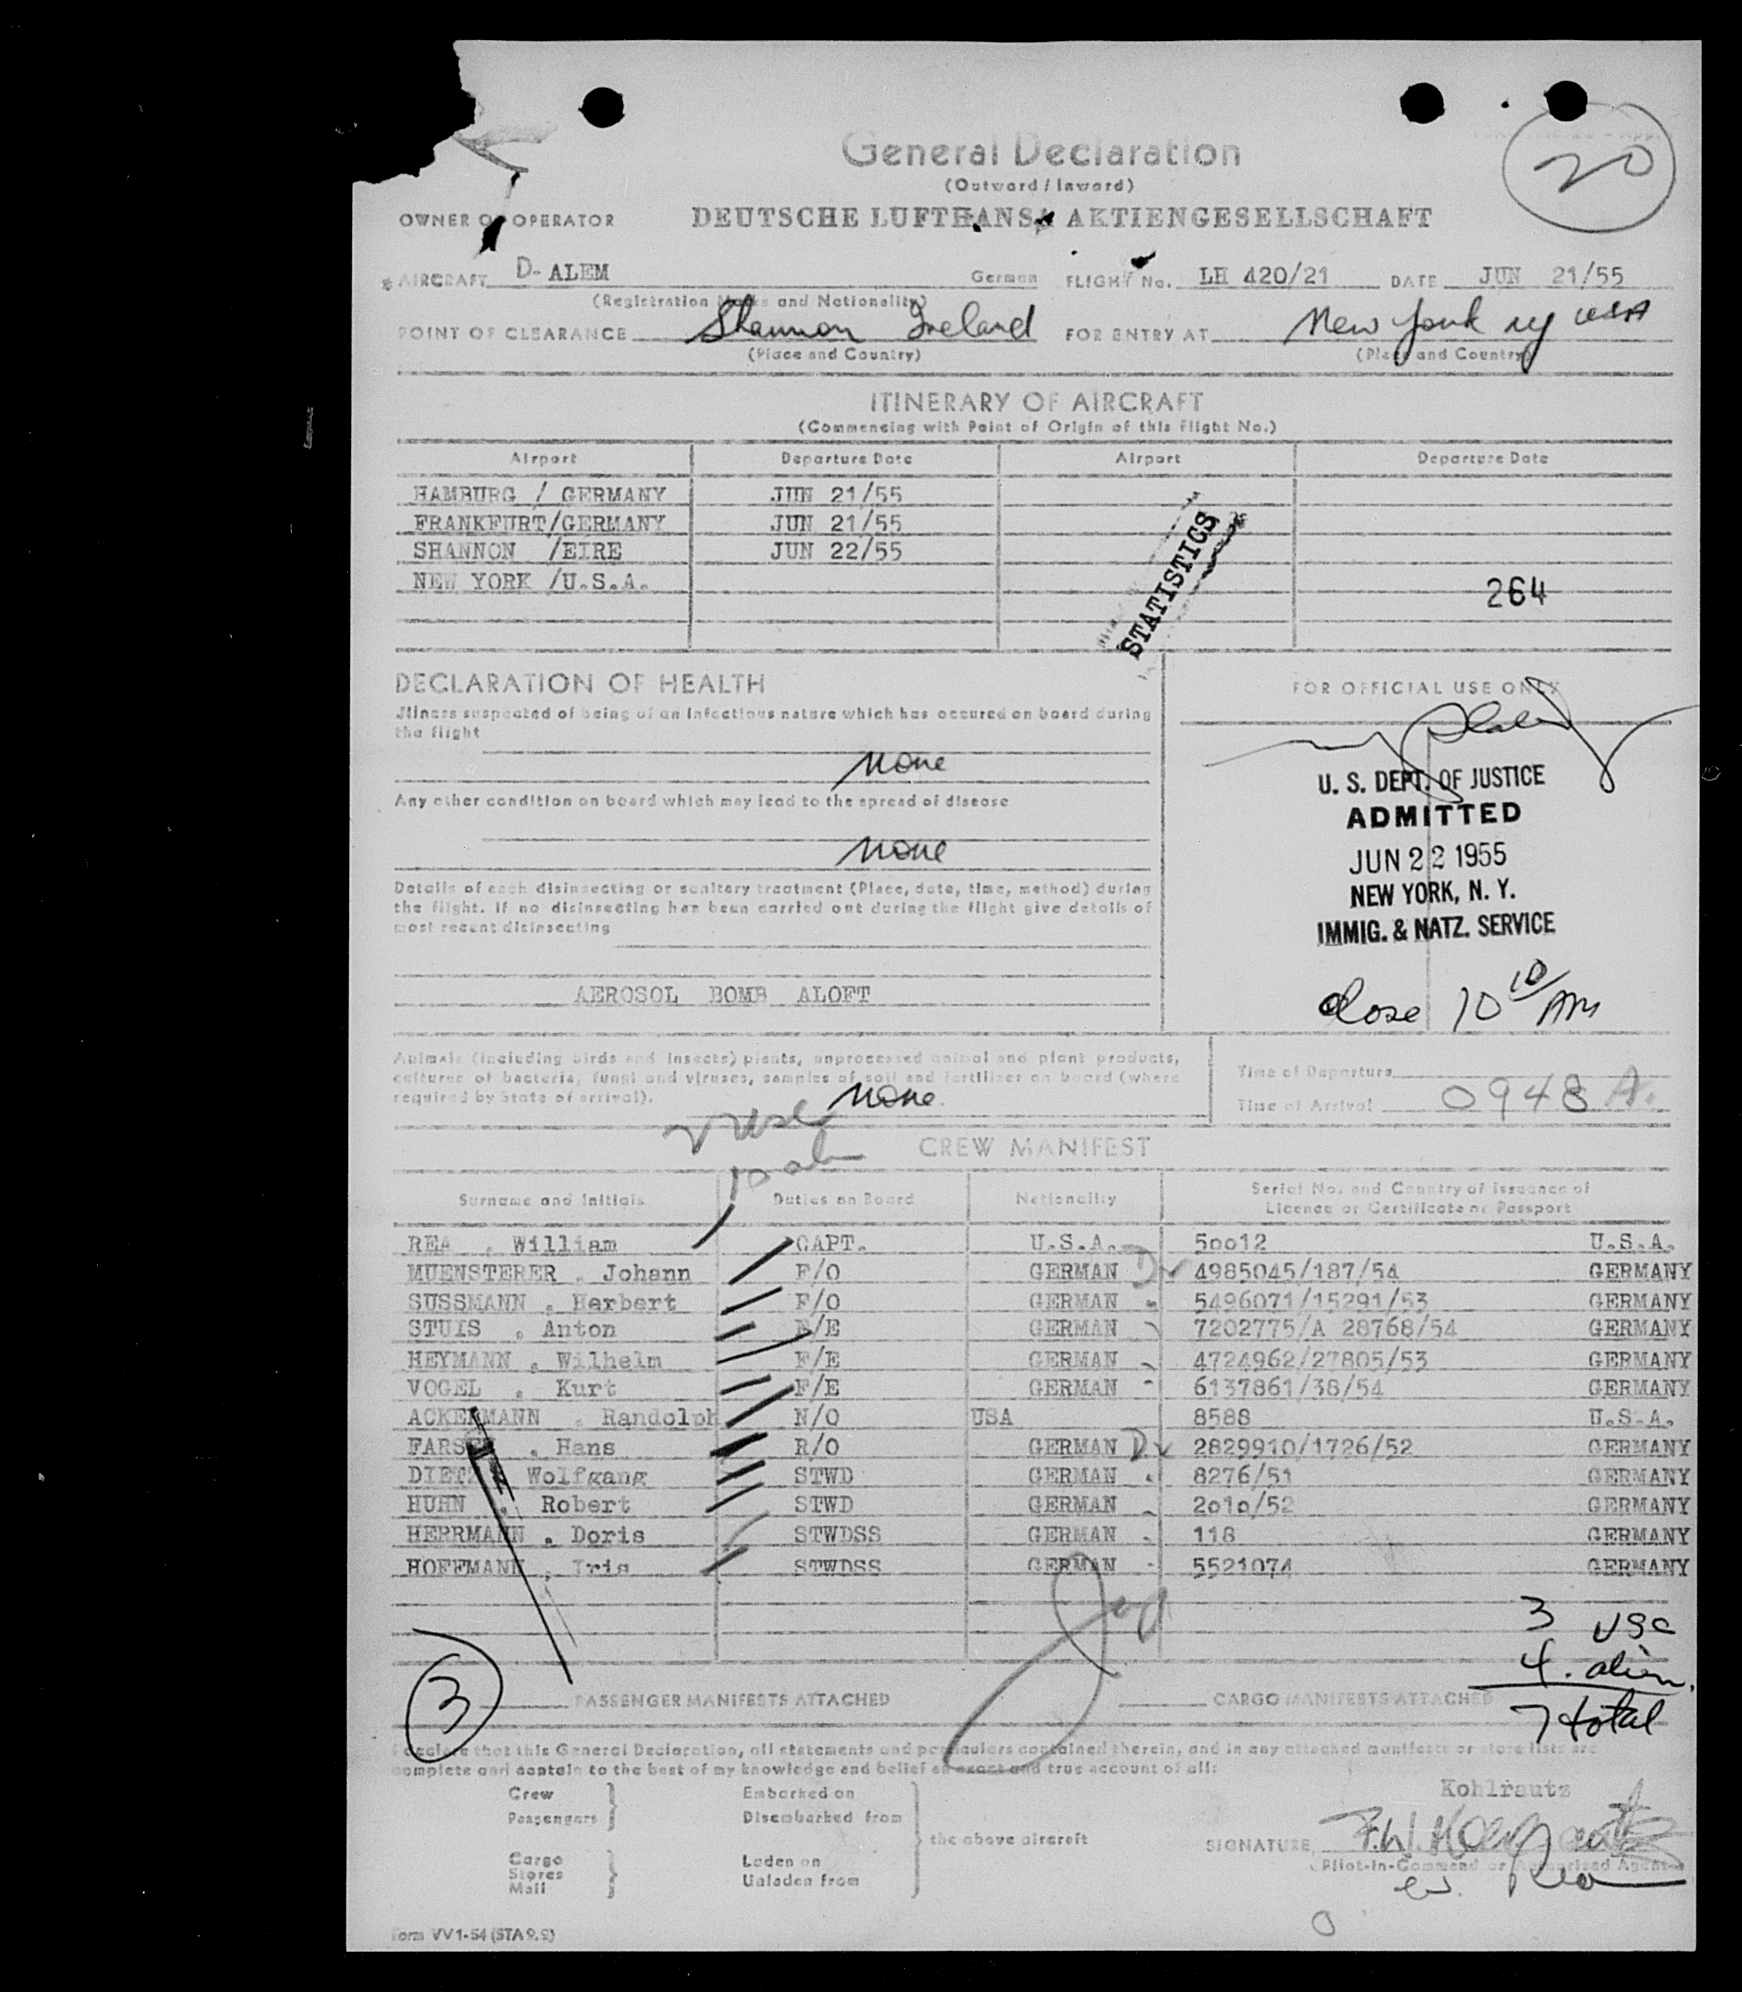 20
General Declaration
(Outward / Inward)
OWNER OR OPERATOR DEUTSCHE LUFTHANSA AKTIENGESELLSCHAFT
AIRCRAFT D-ALEM German FLIGHT No. LH 420/21 DATE JUN 21/55
(Registration Marks and Nationality)
POINT OF CLEARANCE Shannon Ireland FOR ENTRY AT New York ny USA
(Place and Country) (Place and Country)
ITINERARY OF AIRCRAFT
(Commencing with Point of Origin of this Flight No.)
Airport Departure Date Airport Departure Date
HAMBURG / GERMANY JUN 21/55
FRANKFURT/GERMANY JUN 21/55
SHANNON /EIRE JUN 22/55
NEW YORK /U.S.A.
STATISTICS
264
DECLARATION OF HEALTH
Illness suspected of being of an infectious nature which has occured on board during
the flight
None
Any other condition on board which may lead to the spread of disease
None
Details of each disinsecting or sanitary treatment (Place, date, time, method) during
the flight. If no disinsecting has been carried out during the flight give details of
most recent disinsecting
AEROSOL BOMB ALOFT
FOR OFFICIAL USE ONLY
U. S. DEPT. OF JUSTICE
ADMITTED
JUN 22 1955
NEW YORK, N. Y.
IMMIG. & NATZ. SERVICE
Close 10 10/AM
Animals (including birds and insects) plants, unprocessed animal and plant products,
cultures of bacteria, fungi and viruses, samples of soil and fertilizer on board (where
required by State of arrival).
None
Time of Departure
Time of Arrival 0948 A.
CREW MANIFEST
Surname and Initials Duties on Board Nationality Serial No. and Country of Issuance of
Licence or Certificate or Passport
REA , William CAPT. U.S.A. 5oo12 U.S.A.
MUENSTERER , Johann F/O GERMAN 4985045/187/54 GERMANY
SUSSMANN , Herbert F/O GERMAN 5496071/15291/53 GERMANY
STUIS , Anton F/E GERMAN 7202775/A 28768/54 GERMANY
HEYMANN , Wilhelm F/E GERMAN 4724962/27805/53 GERMANY
VOGEL , Kurt F/E GERMAN 6137861/38/54 GERMANY
ACKERMANN , Randolph N/O USA 8588 U.S.A.
, Hans R/O GERMAN 2829910/1726/52 GERMANY
DIETZ , Wolfgang STWD GERMAN 8276/51 GERMANY
HUHN , Robert STWD GERMAN 2o1o/52 GERMANY
HERRMANN , Doris STWDSS GERMAN 118 GERMANY
HOFFMANN , Iris STWDSS GERMAN 5521074 GERMANY
3 USC
4. alien
7 total
3
PASSENGER MANIFESTS ATTACHED CARGO MANIFESTS ATTACHED
I declare that this General Declaration, all statements and particulars contained therein, and in any attached manifests or store lists are
complete and contain to the best of my knowledge and belief an exact and true account of all:
Crew Embarked on
Passengers Disembarked from
the above aircraft
Cargo Laden on
Stores
Mail Unladen from
Kohlrautz
SIGNATURE
(Pilot-in-Command or Authorised Agent)
W. Rea
Form VV1-54 (STA 9.9)